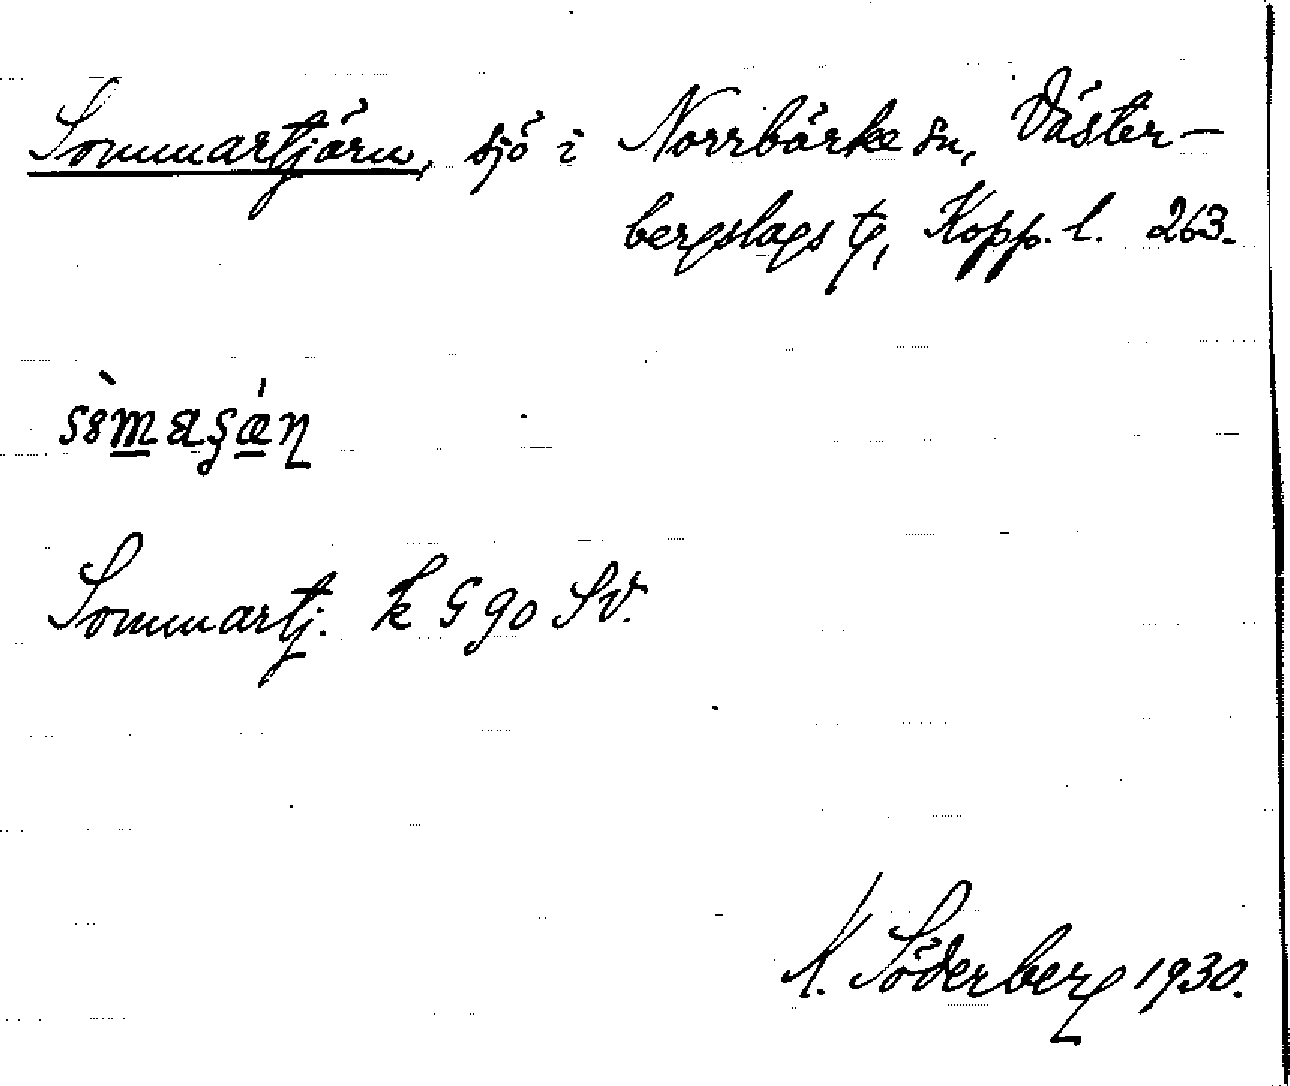 Sommartjärn, sjö i Norrbärke sn, Väster-
bergslags tg, Kopp. l. 263.
Sommartj. k G 90 SV.
K. Söderberg 1930.